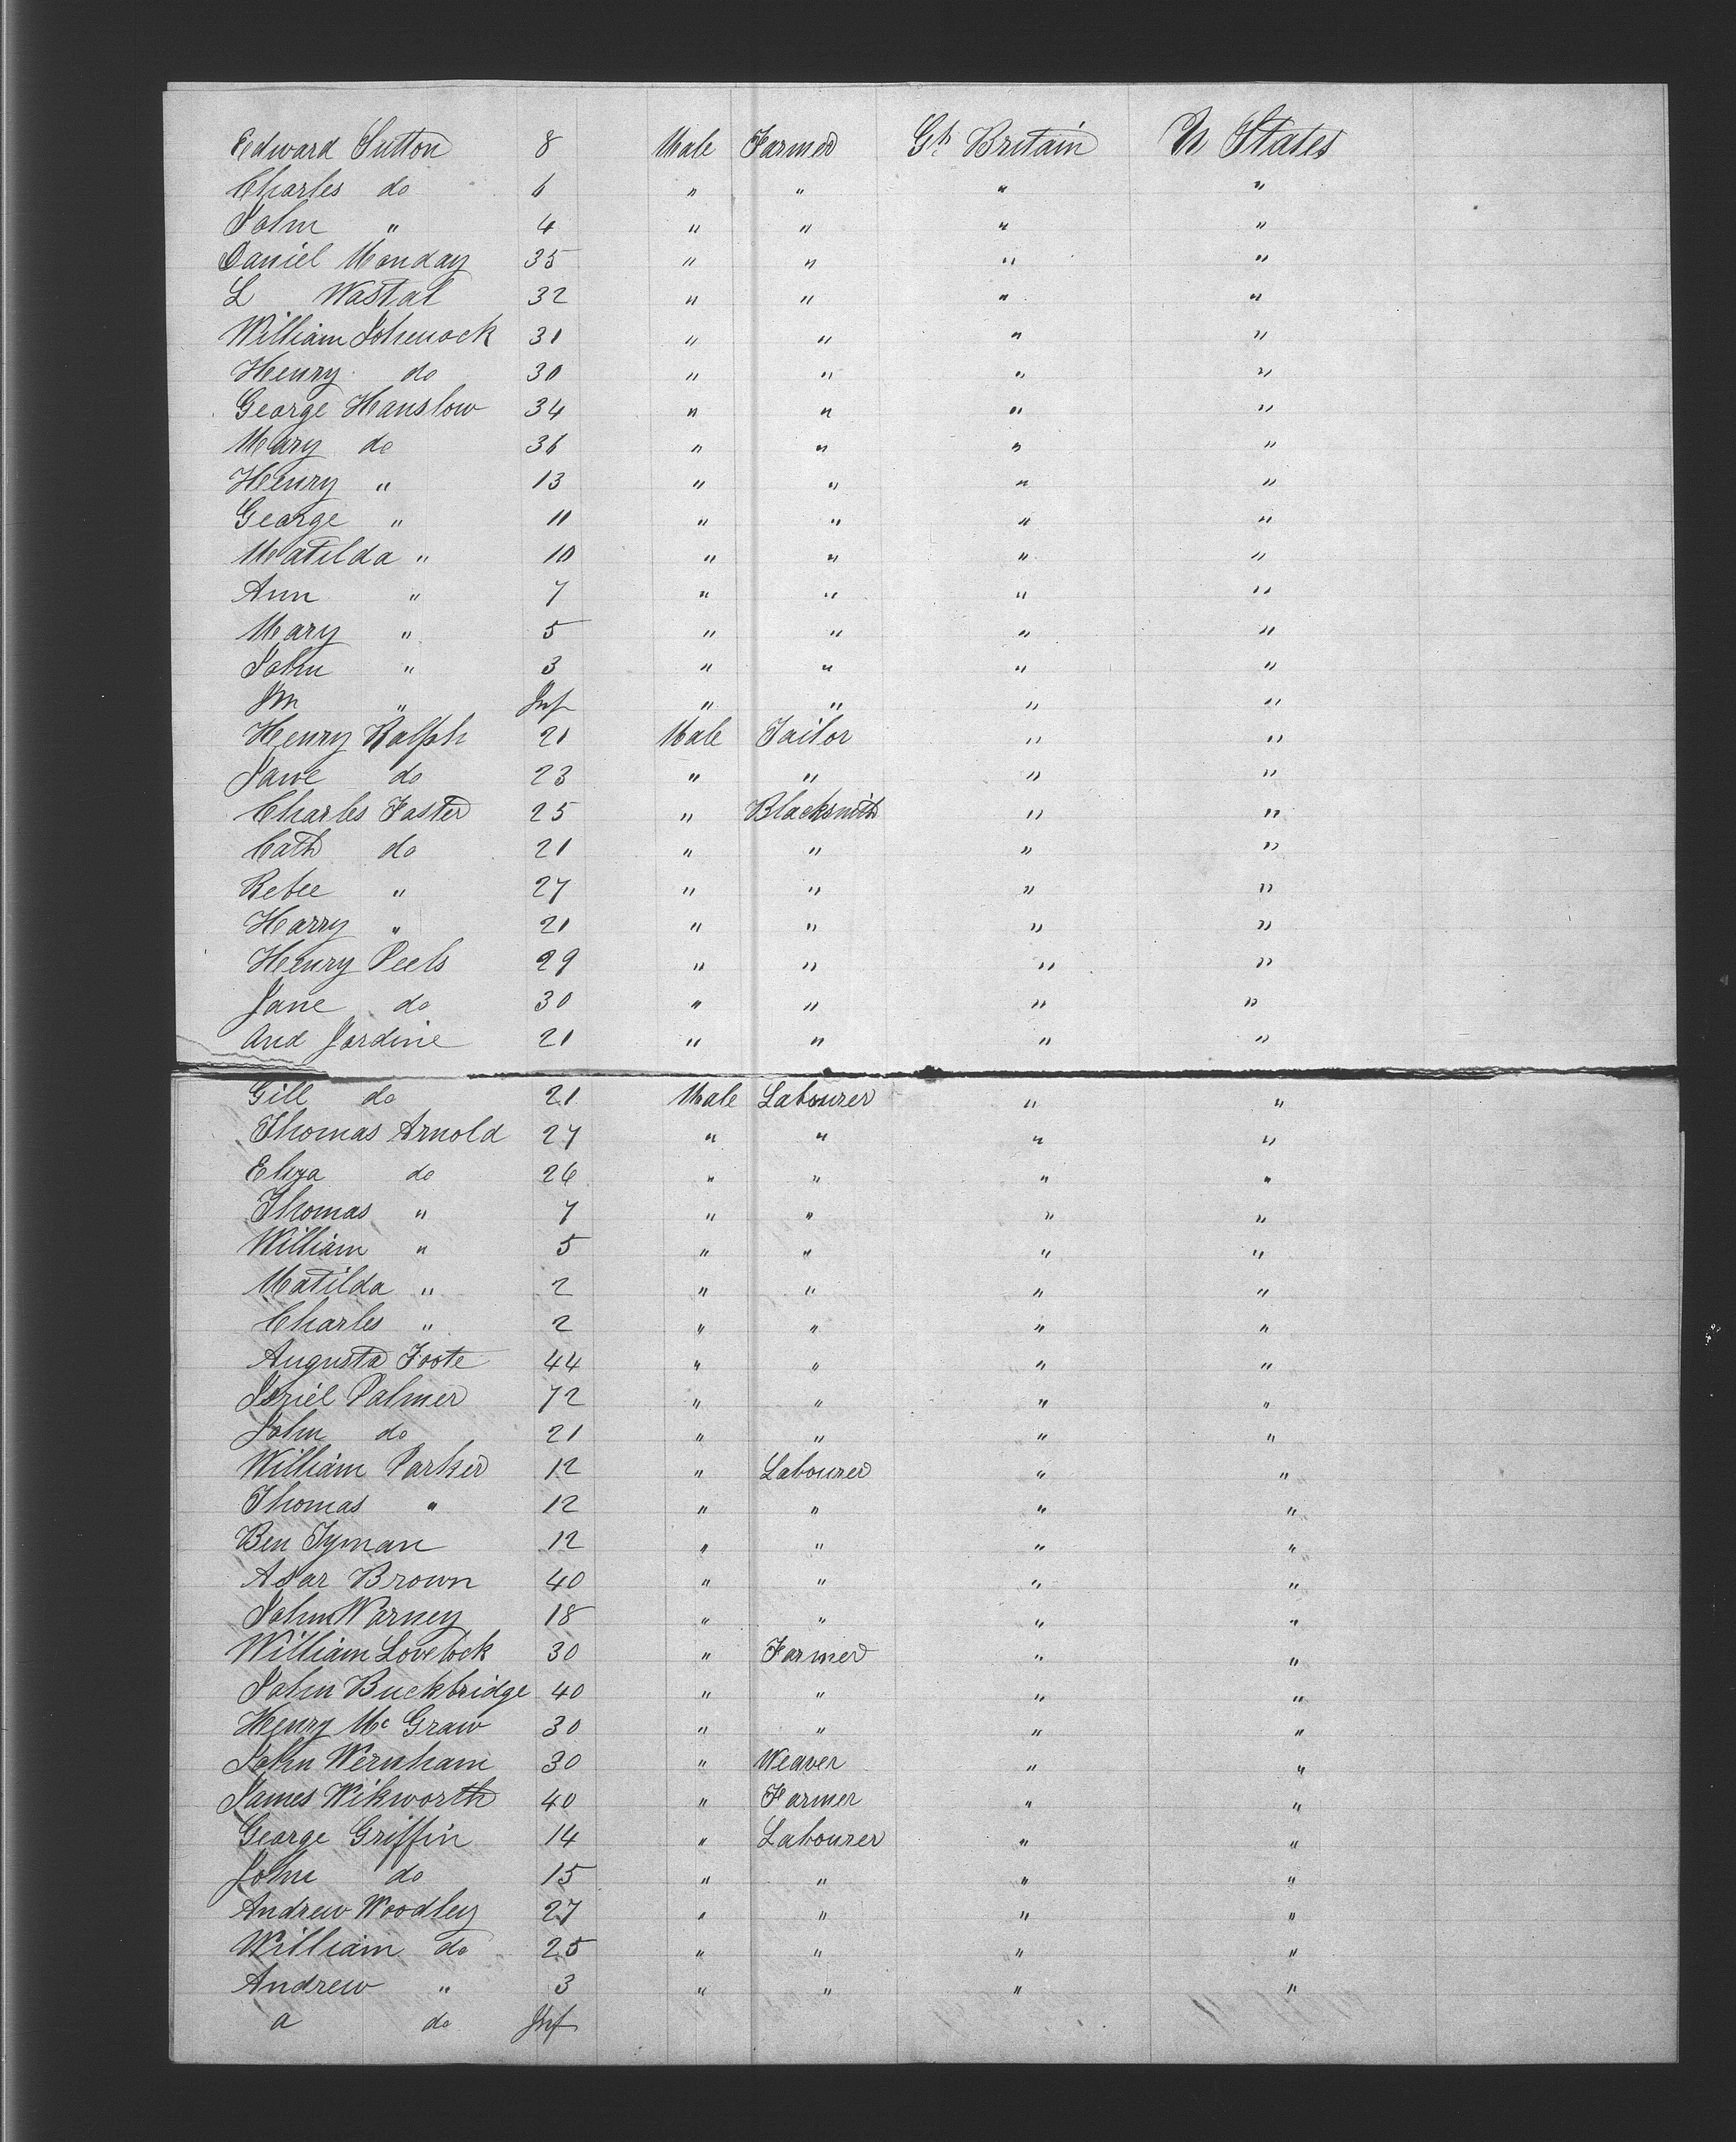 Edward Sutton 8 Male Farmer Gt Britain U States
Charles do 6 " " " "
John " 4 " " " "
Daniel Monday 35 " " " "
L Wastal 32 " " " "
William 31 " " " "
Henry do 30 " " " "
George Hanslow 34 " " " "
Mary do 36 " " " "
Henry " 13 " " " "
George " 11 " " " "
Matilda " 10 " " " "
Ann " 7 " " " "
Mary " 5 " " " "
John " 3 " " " "
Jm " Inf " " " "
Henry Ralph 21 Male Tailor " "
Jane do 23 " " " "
Charles Foster 25 " Blacksmith " "
Cath do 21 " " " "
Rebec " 27 " " " "
Harry " 21 " " " "
Henry Peels 29 " " " "
Jane do 30 " " " "
And Jardine 21 " " " "
Gill do 21 Male Labourer " "
Thomas Arnold 27 " " " "
Eliza do 26 " " " "
Thomas " 7 " " " "
William " 5 " " " "
Matilda " 2 " " " "
Charles " 2 " " " "
Augusta Foote 44 " " " "
Palmer 72 " " " "
John do 21 " " " "
William Parker 12 " Labourer " "
Thomas " 12 " " " "
Ben Tyman 12 " " " "
Brown 40 " " " "
John Warney 18 " " " "
William Lovelock 30 " Farmer " "
John Buckbridge 40 " " " "
Henry Mc Graw 30 " " " "
John Wernham 30 " Weaver " "
James Wikworth 40 " Farmer " "
George Griffin 14 " Labourer " "
John do 15 " " " "
Andrew Woodley 27 " " " "
William do 25 " " " "
Andrew " 3 " " " "
a do Inf